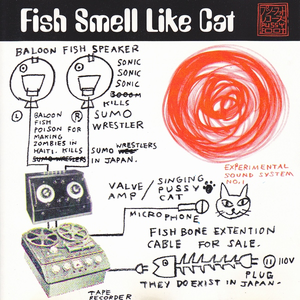 Fish Smell Like Cat
BALOON FISH SPEAKER
SONIC
SONIC
SONIC
BOOOM
KILLS
L
R
BALOON
FISH
POISON FOR
MAKING
ZOMBIES IN
HAITI. KILLS
SUMO WRESTLERS
SUMO
WRESTLER
SUMO WRESTLERS
IN JAPAN.
EXPERIMENTAL
SOUND SYSTEM
NO.1
VALVE
AMP/
SINGING
PUSSY
CAT
MICROPHONE
FISH BONE EXTENTION
CABLE FOR SALE.
110V
PLUG
THEY DO EXIST IN JAPAN.
TAPE
RECORDER